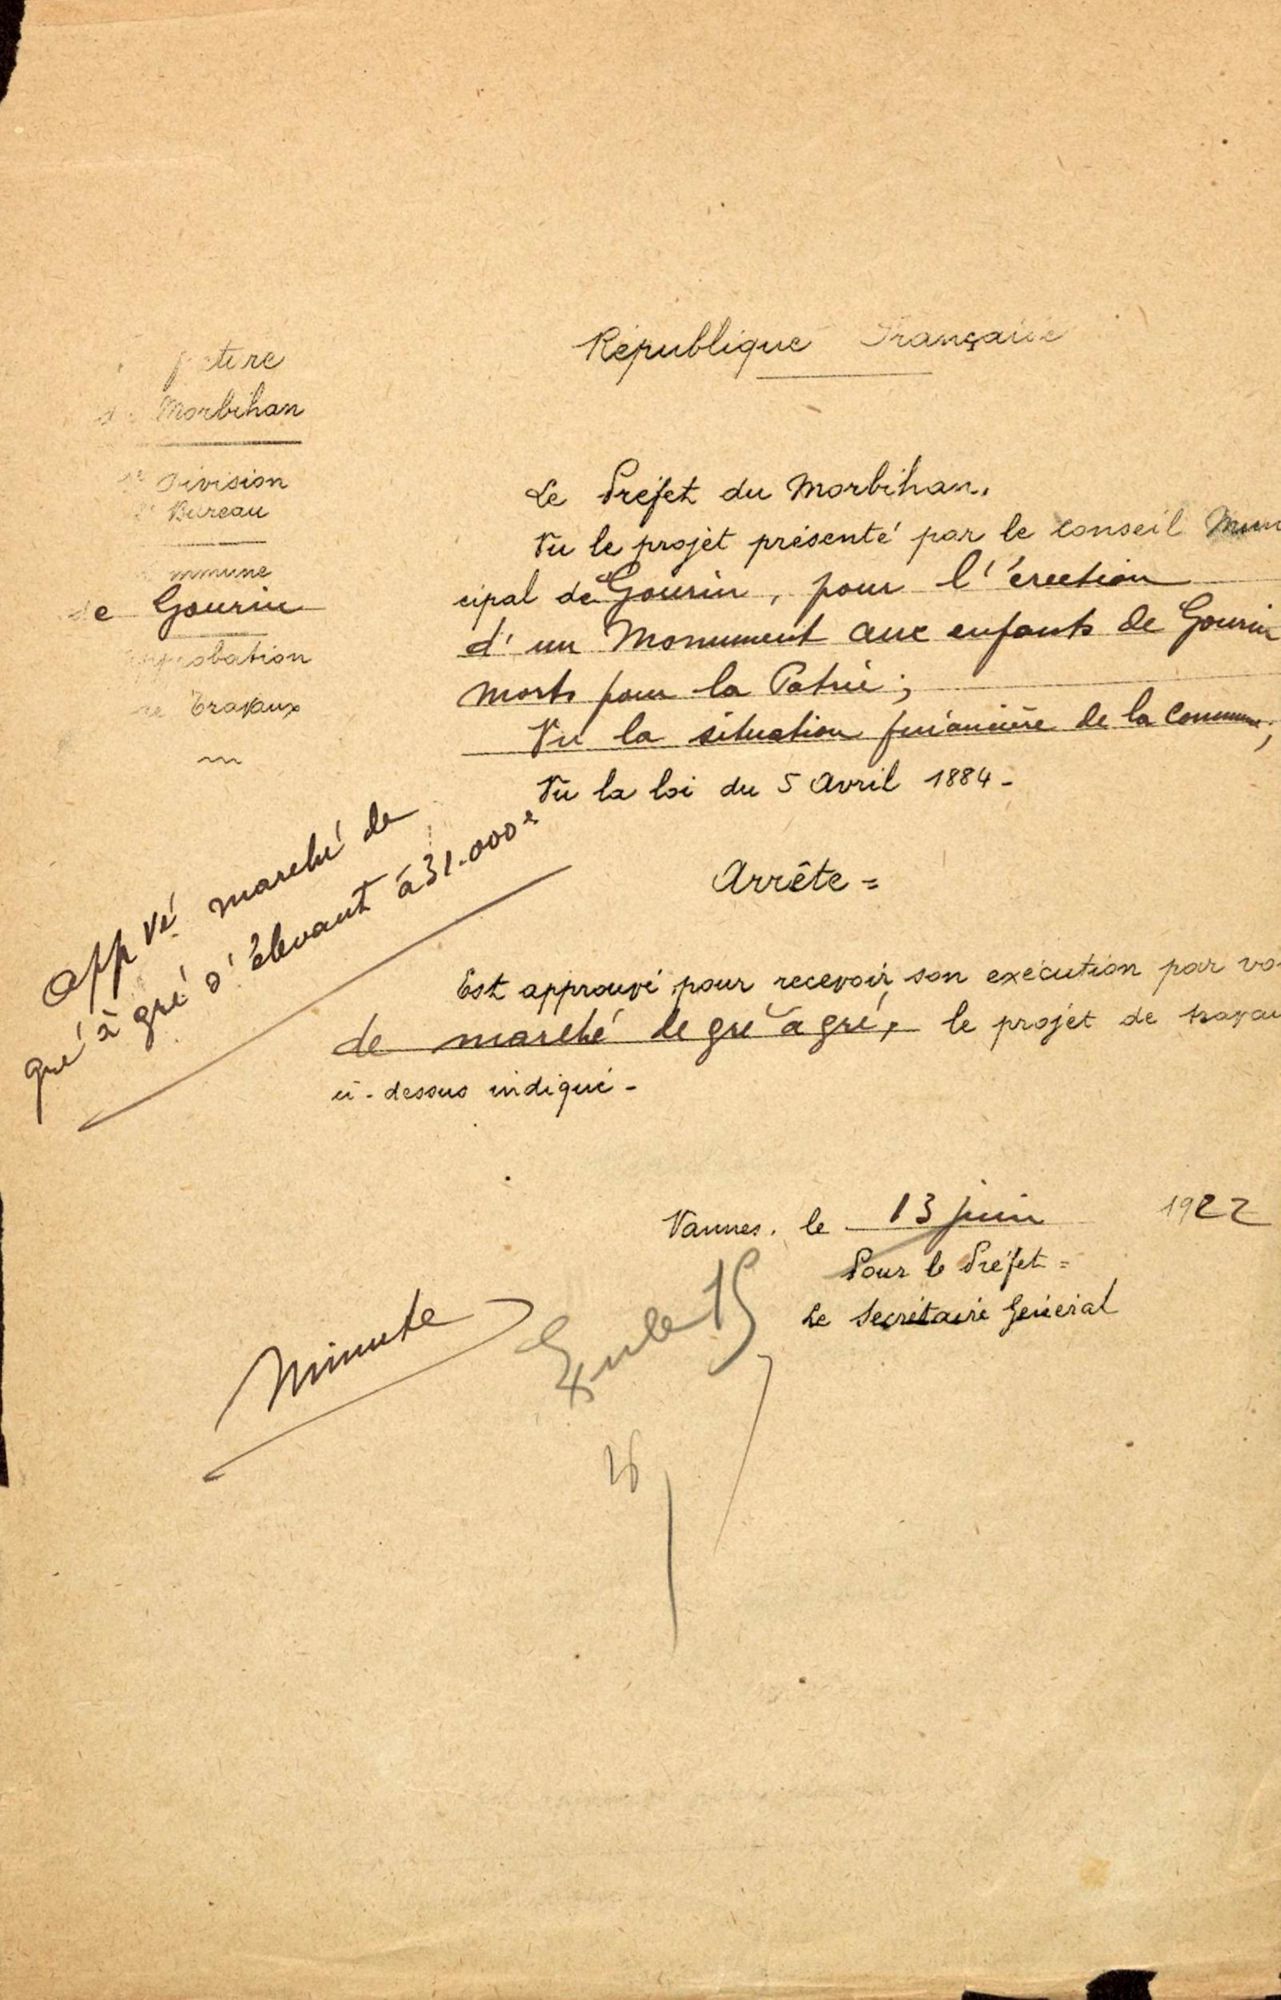 République Française
cture
du Morbihan
Division
Bureau
mmune
de Gourin
Approbation
de Travaux
Le Préfet du Morbihan.
Vu le projet présenté par le conseil Muni
cipal de Gourin, pour l'érection
d'un Monument aux enfants de Gourin
morts pour la Patrie ;
Vu la situation financière de la Commune,
Vu la loi du 5 Avril 1884 -
App vé marché de
gré à gré s'élevant à 31.000 f
Arrête =
Est approuvé pour recevoir son exécution par vo
de marché de gré à gré, le projet de travau
ci-dessus indiqué -
Vannes. le 13 juin 1922
Pour le Préfet =
Le Secrétaire Général
Minute